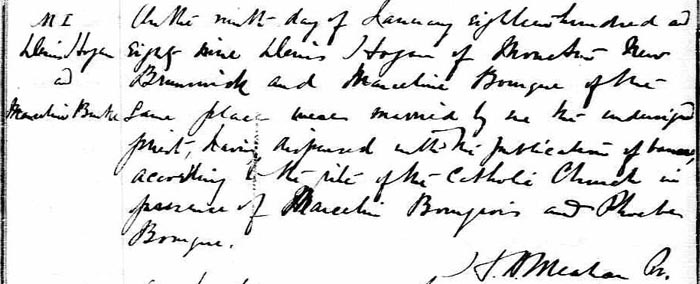 M I
Denis Hogan
and
Marceline Burke
On the ninth day of January eighteen hundred and
eighty nine Denis Hogan of Moncton New
Brunswick and Marceline Bourque of the
same place were married by me the undersigned
priest, having dispensed with the publication of banns,
according to the rite of the Catholic Church in
presence of Marcelin Bourgeois and Phoebe
Bourque.
H. A. Meahan Pr.